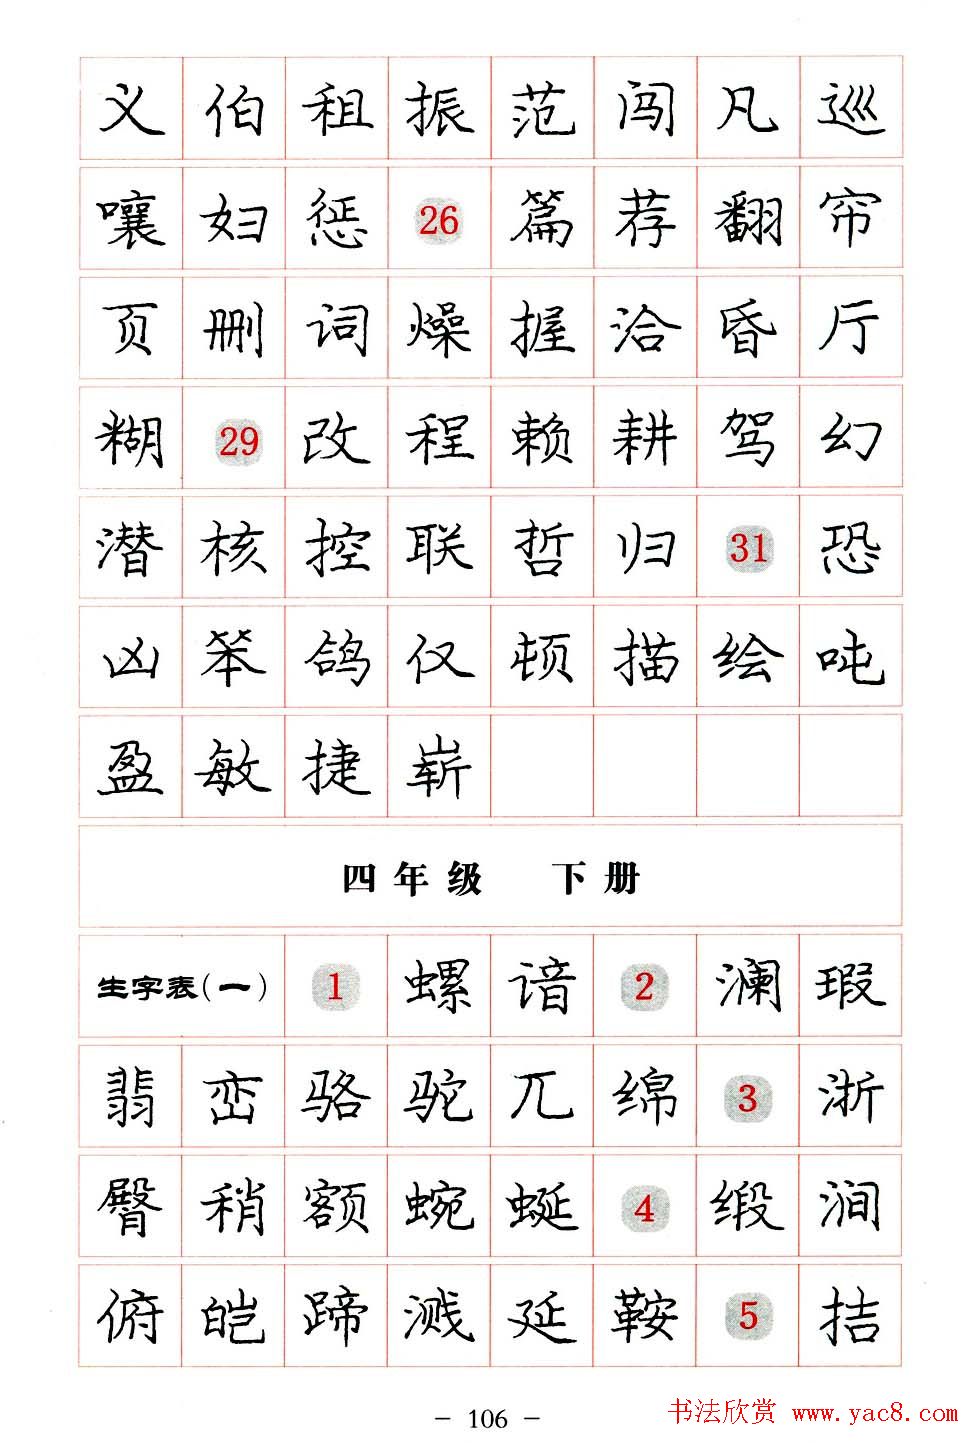 义伯租振范闯凡巡
嚷妇惩26篇荐翻帘
页删词燥握洽昏厅
糊29改程赖耕驾幻
潜核控联哲归31恐
凶笨鸽仅顿描绘吨
盈敏捷崭
四年级 下册
生字表(一) 1 螺谙2澜瑕
翡峦骆驼兀绵3浙
臀稍额蜿蜒4缎涧
俯皑蹄溅延鞍5拮
- 106 -
书法欣赏 www.yac8.com